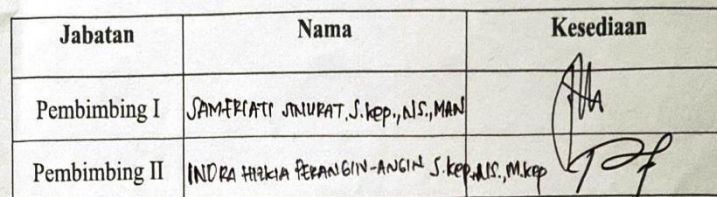 Jabatan Nama Kesediaan
Pembimbing I SAMFRIATI SINURAT, S.Kep., NS., MAN
Pembimbing II INDRA HIZKIA PERANGIN-ANGIN S.Kep., NS., M.Kep